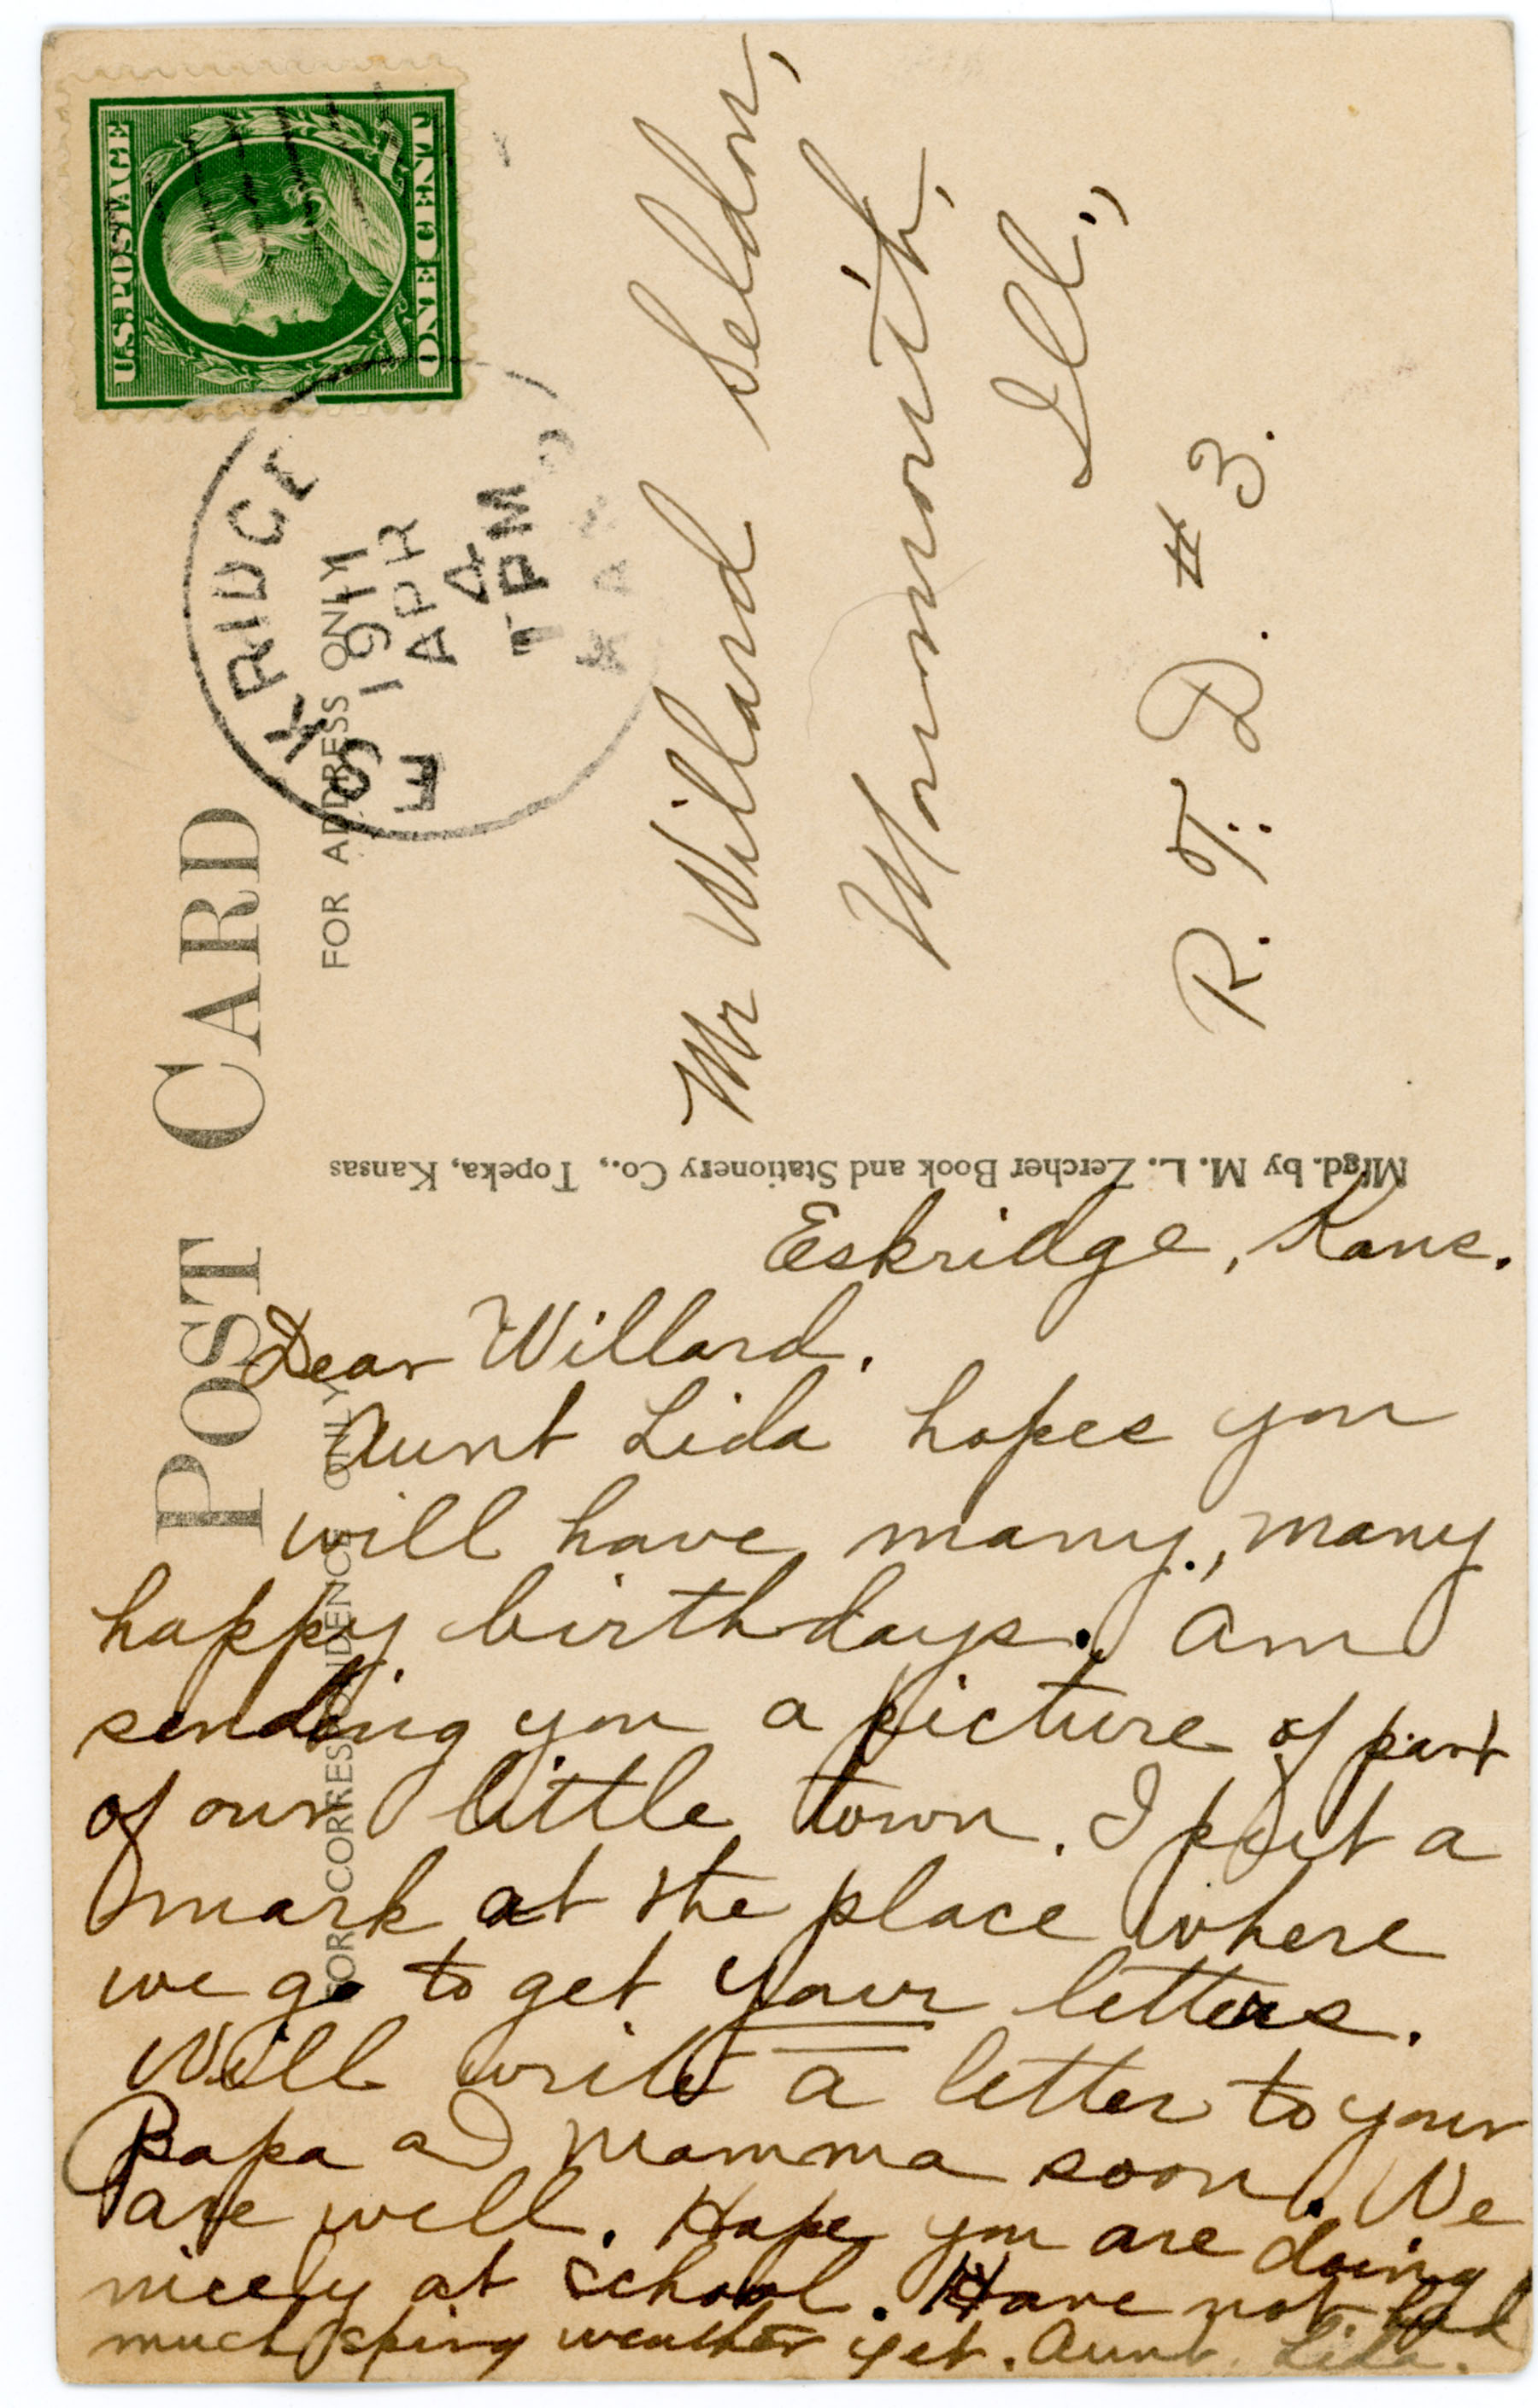 U.S. POSTAGE
ONE CENT
ESKRIDGE
1911
APR
4
PM
KA
POST CARD
FOR ADDRESS ONLY
FOR CORRESPONDENCE ONLY
Mr Willard Seldon,
Monmouth,
Ill.,
R. F. D. #3.
Mfgd. by M. L. Zercher Book and Stationery Co., Topeka, Kansas
Eskridge, Kans.
Dear Willard.
Aunt Lida hopes you
will have many, many
happy birthdays. Am
sending you a picture of part
of our little town. I put a
mark at the place where
we go to get your letters.
Will write a letter to your
Papa and Mamma soon. We
are well. Hope you are doing
nicely at school. Have not had
much spring weather yet. Aunt Lida.